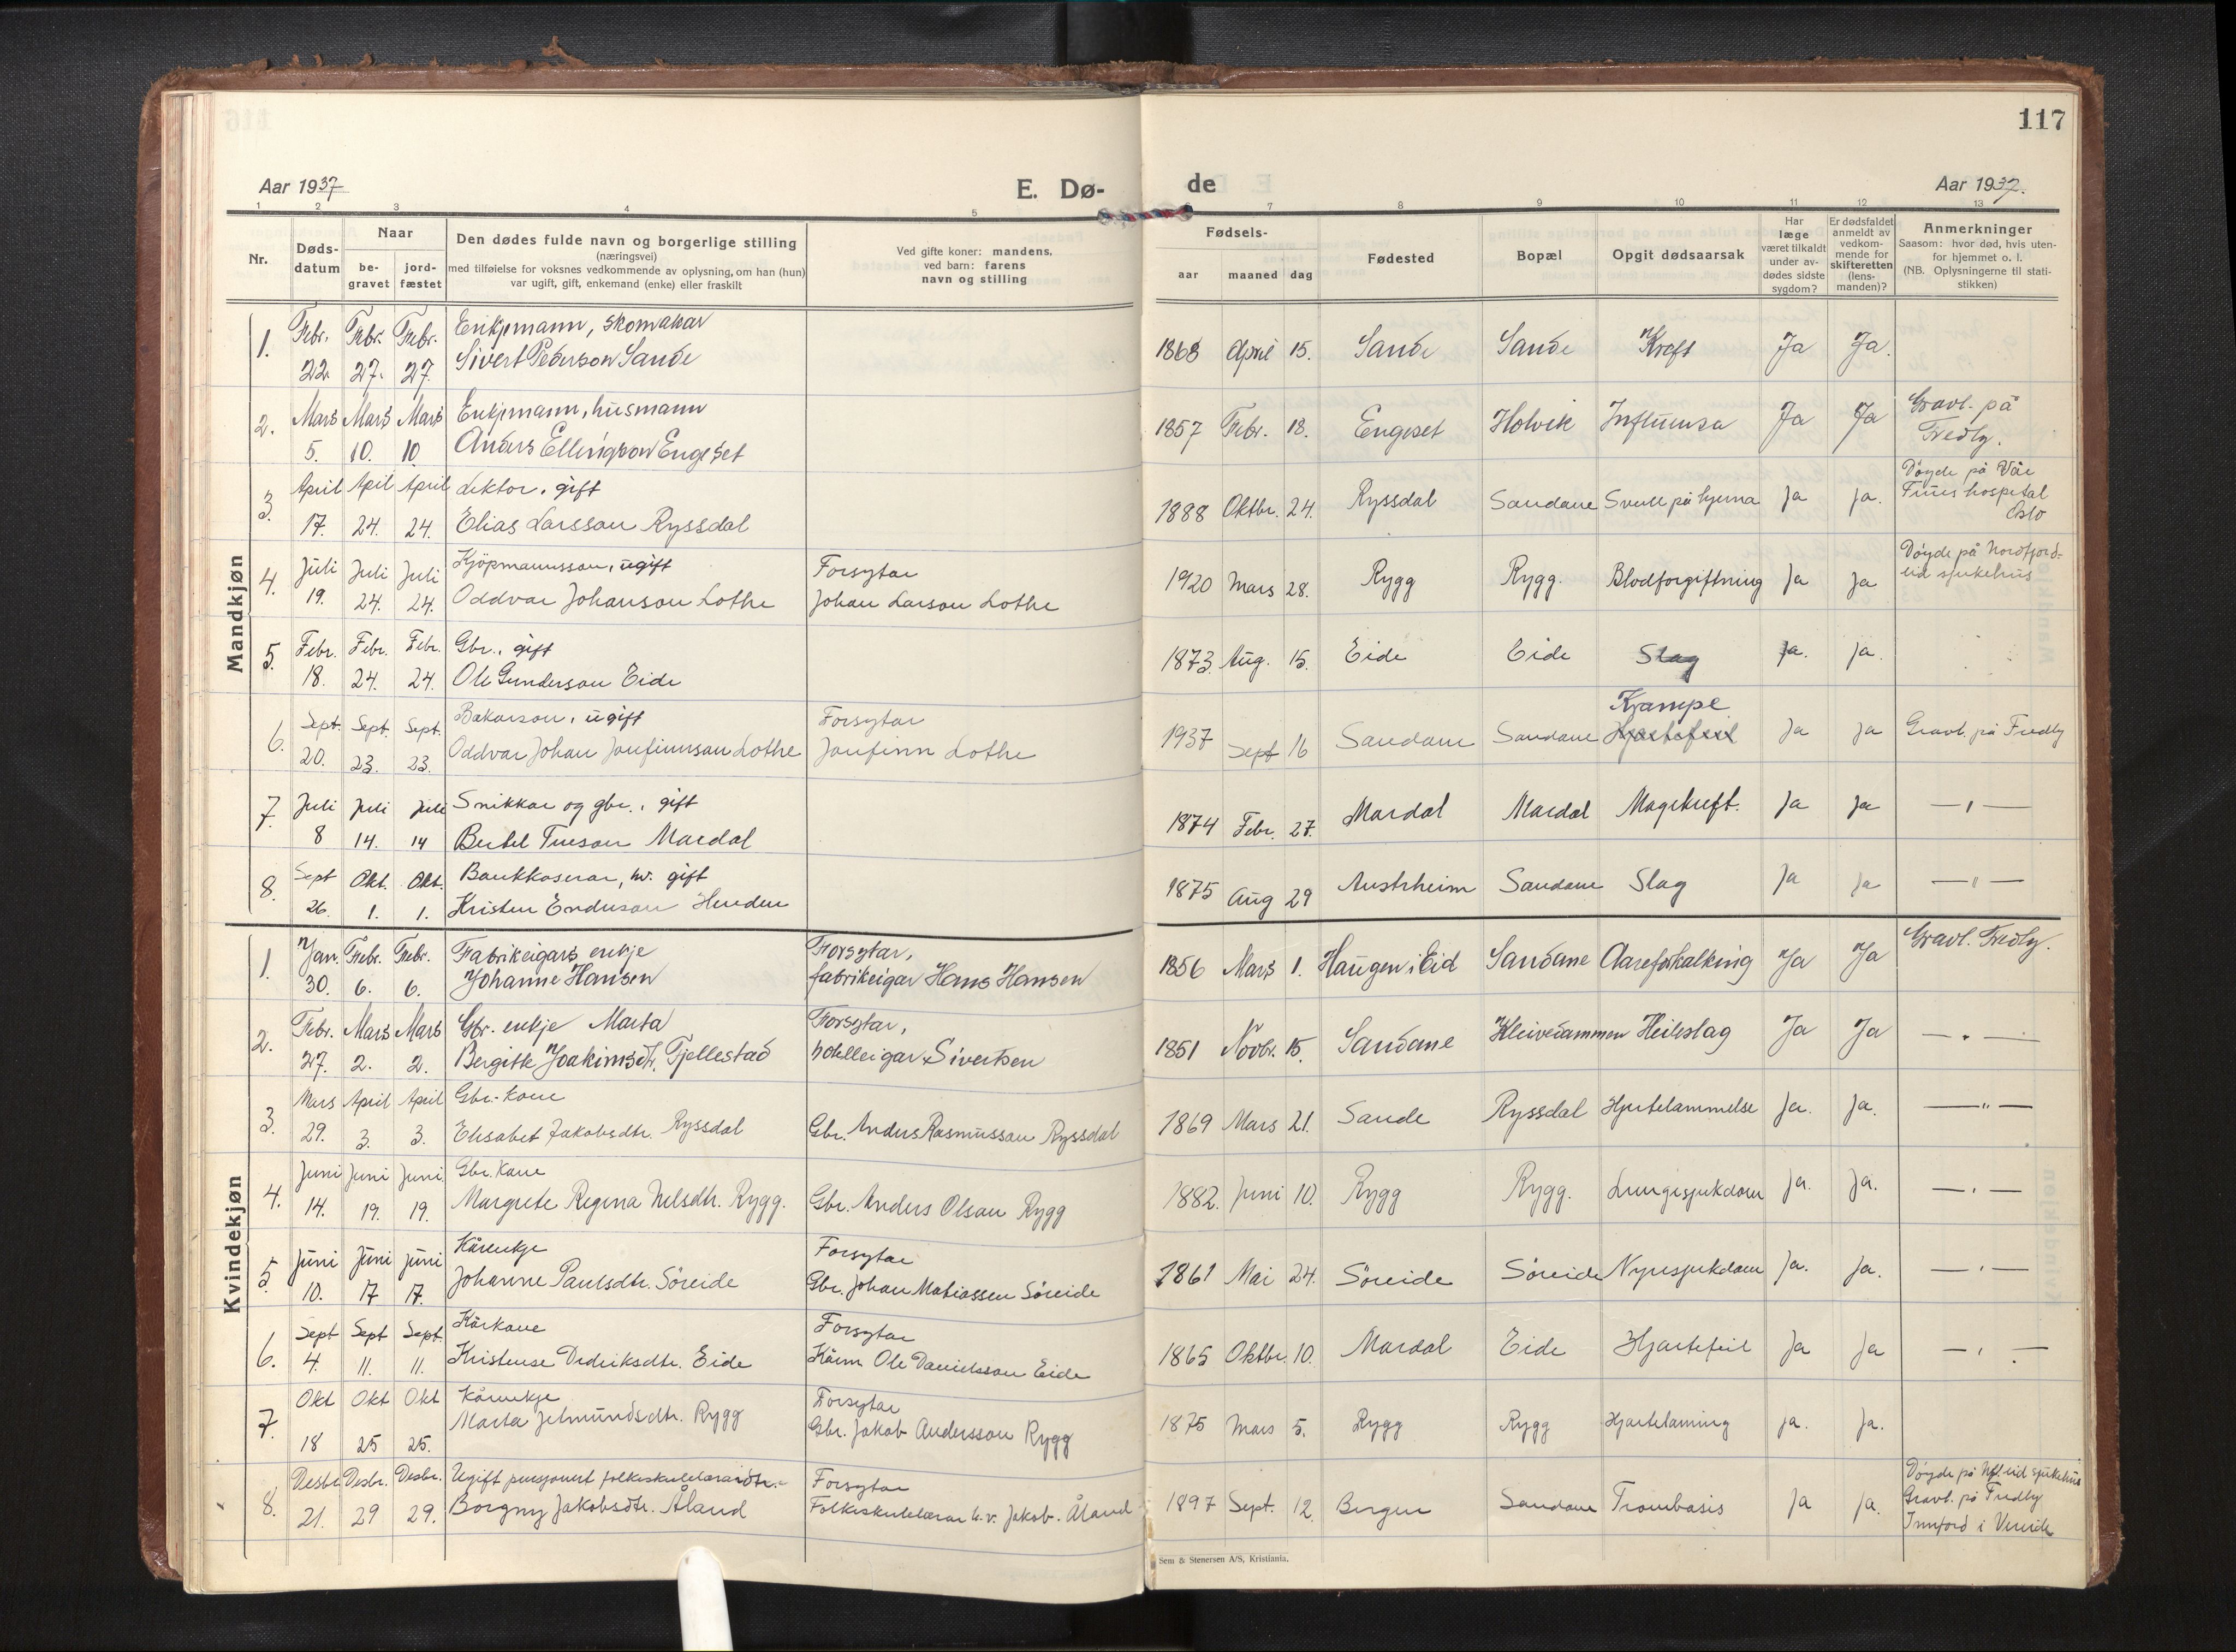 117
Aar 1937
E. Dø-
de
Aar 1937.
1 2 3 4 5 7 8 9 10 11 12 13
Nr.
Døds-
datum
Naar
be-
gravet
jord-
fæstet
Den dødes fulde navn og borgerlige stilling
(næringsvei)
med tilføielse for voksnes vedkommende av oplysning, om han (hun)
var ugift, gift, enkemand (enke) eller fraskilt
Ved gifte koner: mandens,
ved barn: farens
navn og stilling
Fødsels-
aar maaned dag
Fødested
Bopæl
Opgit dødsaarsak
Har
læge
været tilkaldt
under av-
dødes sidste
sygdom?
Er dødsfaldet
anmeldt av
vedkom-
mende for
skifteretten
(lens-
manden)?
Anmerkninger
Saasom: hvor død, hvis uten-
for hjemmet o. l.
(NB. Oplysningerne til stati-
stikken)
Mandkjøn
1. Febr. Febr. Febr. Enkjemann, skomakar
22. 27. 27. Sivert Pederson Sande
1868 April 15. Sande Sande Kreft Ja Ja.
2. Mars Mars Mars Enkjemann, husmann
5. 10. 10. Anders Ellingson Engeset
1857 Febr. 18. Engeset Holvik Influensa Ja Ja Gravl. på
Fredly.
3. April April April Lektor, gift
17. 24. 24. Elias Larsson Ryssdal
1888 Oktbr. 24. Ryssdal Sandane Svull på hjerna Ja Ja. Döyde på Vår
Frues hospital
Oslo
4. Juli Juli Juli Kjöpmannsson, ugift Forsytar
19. 24. 24. Oddvar Johanson Lothe Johan Larson Lothe
1920 Mars 28. Rygg Rygg. Blodforgiftning Ja Ja Döyde på Nordfjord-
eid sjukehus
5. Febr. Febr. Febr. Gbr., gift
18. 24. 24. Ole Gunderson Eide
1873. Aug. 15. Eide Eide Slag Ja. Ja.
6. Sept. Sept. Sept. Bakarson, ugift Forsytar
20. 23. 23. Oddvar Johan Jonfinnson Lothe Jonfinn Lothe
Krampe
1937 Sept 16 Sandane Sandane Hjertefeil Ja Ja Gravl. på Fredly
7. Juli Juli Juli Snikkar og gbr., gift
8 14. 14 Bertel Tueson Mardal
1874 Febr. 27. Mardal Mardal Magekreft. Ja Ja — " —
8. Sept Okt. Okt. Bankkaserar, hv. gift
26. 1. 1. Kristen Enderson Henden
1875 Aug 29 Austrheim Sandane Slag Ja Ja — " —
Kvindekjøn
1. Jan. Febr. Febr. Fabrikeigars enkje Forsytar,
30. 6. 6. Johanne Hansen fabrikeigar Hans Hansen
1856 Mars 1. Haugen i Eid Sandane Aareforkalking Ja Ja Gravl. Fredly.
2. Febr. Mars Mars Gbr. enkje Marta Forsytar,
27. 2. 2. Bergitte Joakimsdtr. Fjellestad hotelleigar Sivertsen
1851 Novbr. 15. Sandane Kleivedammen Heileslag Ja Ja — " —
3. Mars April April Gbr.-kone
29. 3. 3. Elisabet Jakobsdtr. Ryssdal Gbr. Anders Rasmusson Ryssdal
1869 Mars 21. Sande Ryssdal Hjertelammelse Ja. Ja. — " —
4. Juni Juni Juni Gbr. kone
14. 19. 19. Margrete Regina Nelsdtr. Rygg. Gbr. Anders Olsan Rygg
1882. Juni 10. Rygg Rygg. Lungesjukdom Ja. Ja. — " —
5. Juni Juni Juni Kårenkje Forsytar
10. 17 17. Johanne Paulsdtr. Söreide Gbr. Johan Matiassen Söreide
1861 Mai 24. Söreide Söreide Nyresjukdom Ja. Ja. — " —
6. Sept Sept Sept. Kårkone Forsytar
4. 11. 11. Kristense Dideriksdtr. Eide Kårm. Ole Danielsson Eide
1865 Oktbr. 10. Mardal Eide Hjartefeil Ja Ja — " —
7. Okt Okt Okt Kårenkje Forsytar
18 25 25. Marta Jetmundsdtr. Rygg Gbr. Jakob Andersson Rygg
1875 Mars 5. Rygg Rygg Hjartelaming Ja. Ja.
8. Desbr. Desbr. Desbr. Ugift pensjonert folkeskulelærardtr. Forsytar
21. 29 29. Borgny Jakobsdtr. Åland Folkeskulelærar h.v. Jakob Åland
1897 Sept. 12. Bergen Sandane Trombosis Ja Ja. Döyde på Nfl.eid sjukehus
Gravl. på Fredly
Innförd i Vereide
Sem & Stenersen A/S, Kristiania.